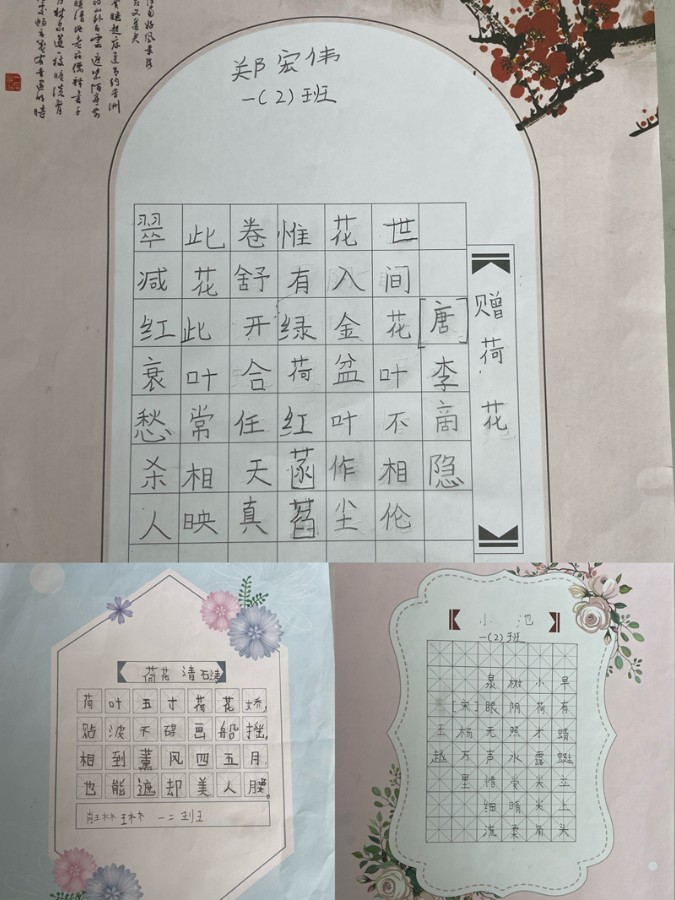 郑宏伟
一(2)班
赠荷花
[唐]李商隐
世间花叶不相伦
花入金盆叶作尘
惟有绿荷红菡萏
卷舒开合任天真
此花此叶常相映
翠减红衰愁杀人
荷花 清 石涛
荷叶五寸荷花娇，
贴波不碍画船摇，
相到薰风四五月，
也能遮却美人腰。
一二班
小池
一(2)班
王越
[宋]杨万里
泉眼无声惜细流
树阴照水爱晴柔
小荷木露尖尖角
早有蜻蜓立上头